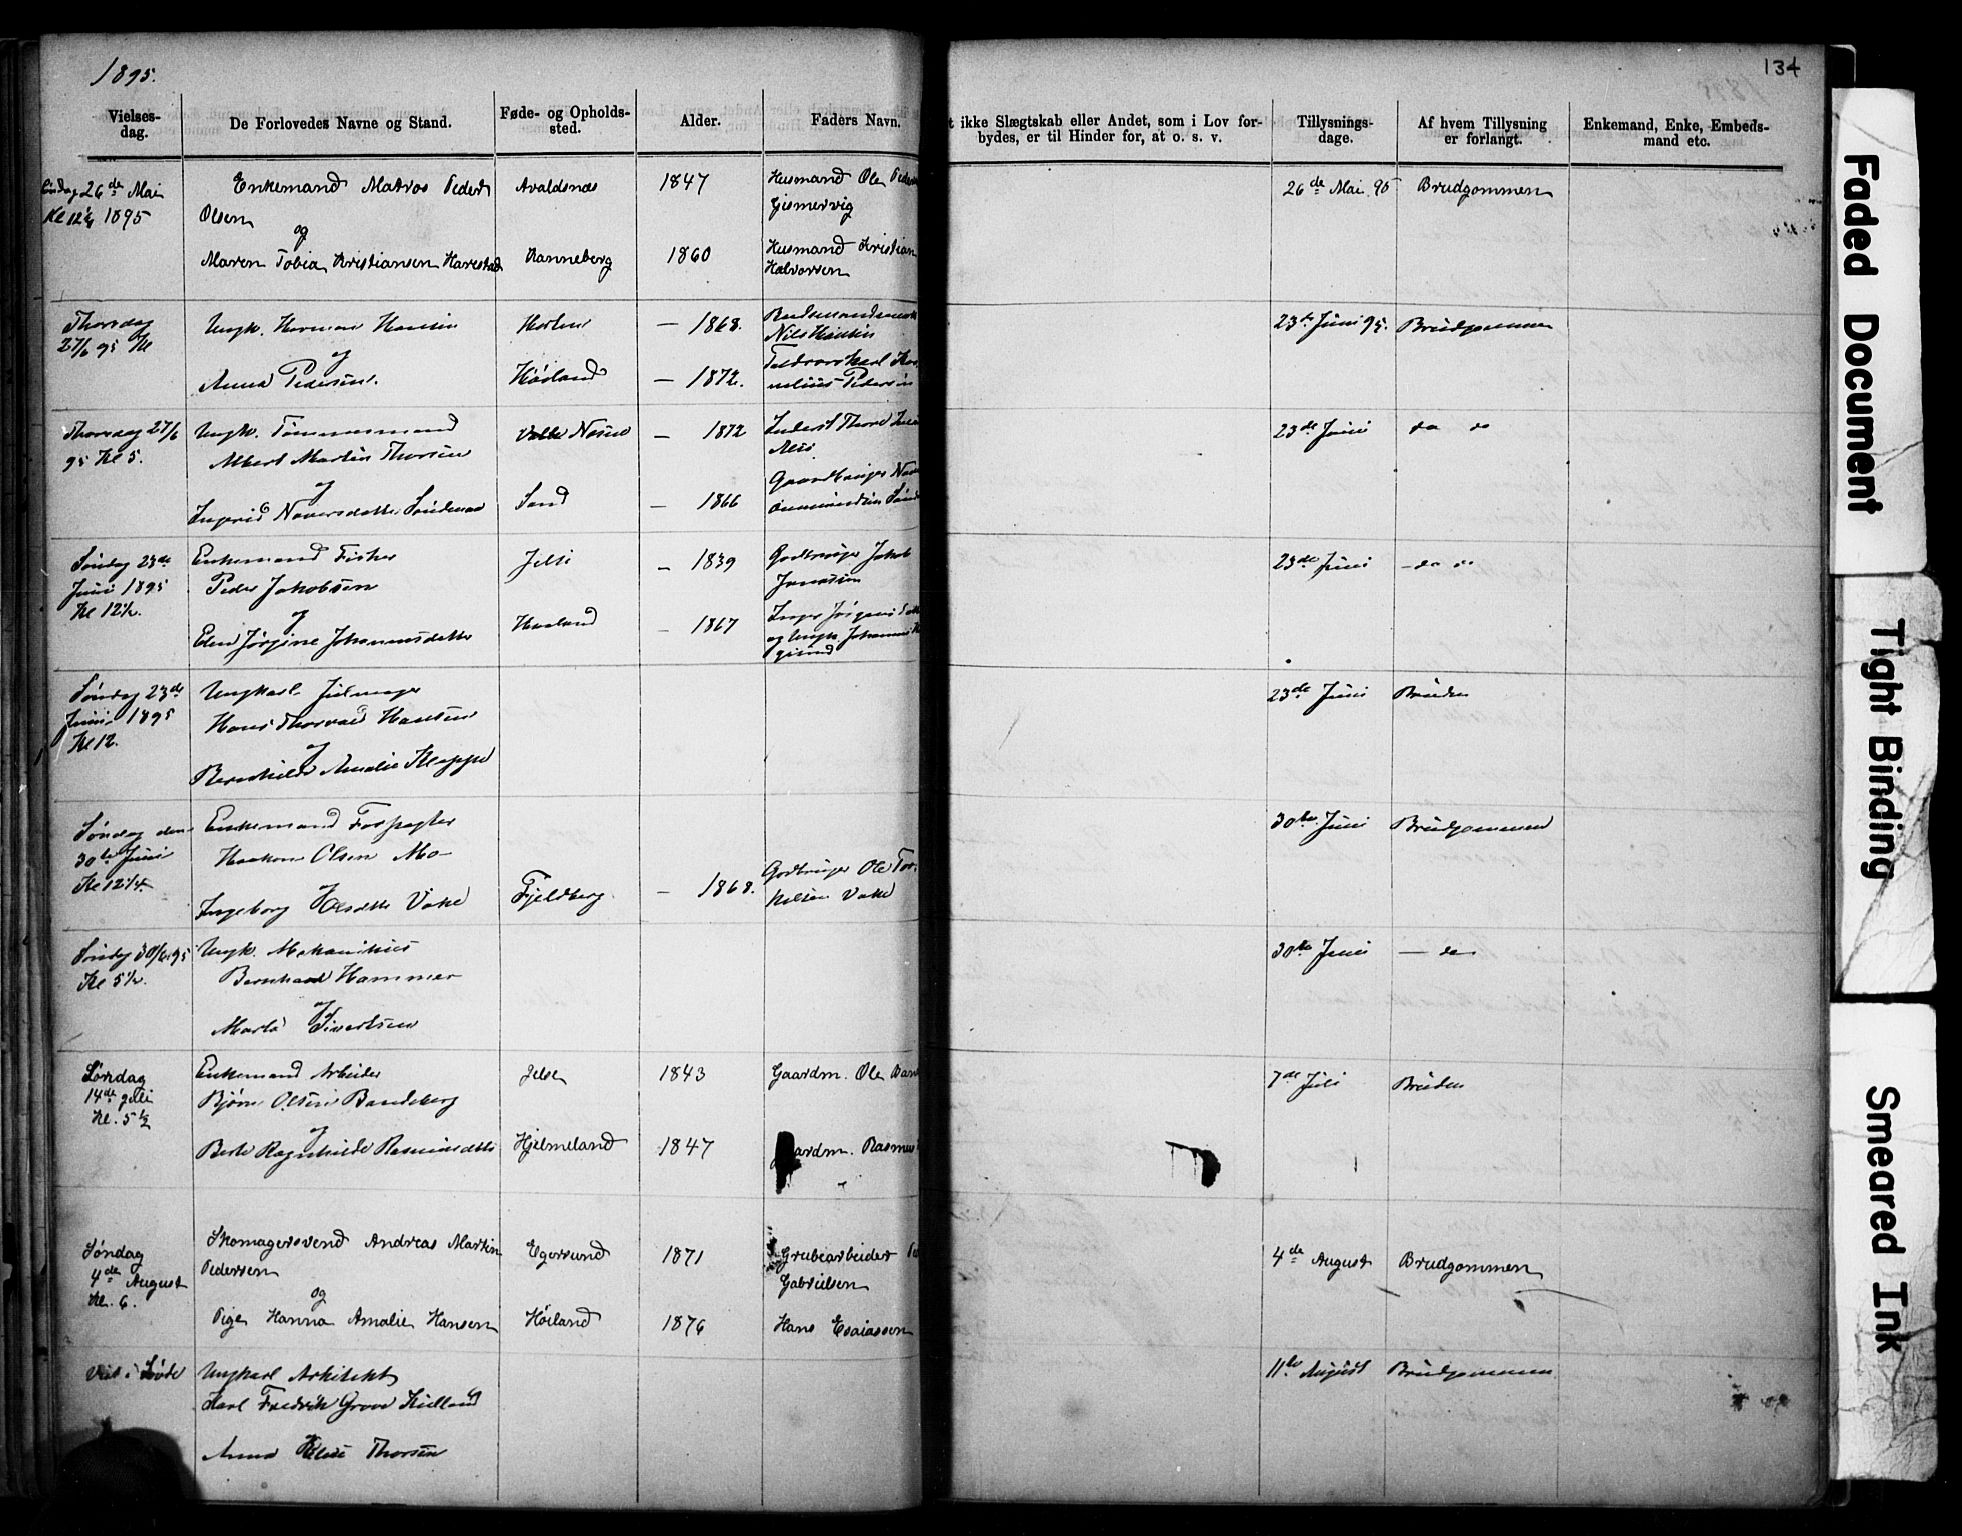 1895.
134
Vielses-
dag.
De Forlovedes Navne og Stand.
Føde- og Opholds-
sted.
Alder.
Faders Navn.
t ikke Slægtskab eller Andet, som i Lov for-
bydes, er til Hinder for, at o. s. v.
Tillysnings-
dage.
Af hvem Tillysning
er forlangt.
Enkemand, Enke, Embeds-
mand etc.
26de Mai
Kl 12½ 1895
Enkemand Matros Peder
Olsen
og
Maren Tobia Kristiansen Harestad
Avaldsnæs
Ranneberg
1847
1860
Husmand Ole
Gismervig
Husmand Kristian
Halvorsen
26de Mai 95
Brudgommen
Thorsdag
27/6 95 Kl
Ungk. Herman Hansen
og
Anna Pedersen.
Høiland
— 1868.
— 1872.
Nils Hansen
23de Juni 95.
Brudgommen
Thorsdag 27/6
95 Kl 5.
Ungk. Tømmermand
Albert Martin Thorsen
og
Ingerid
Sand
— 1872
— 1866
23de Juni
do do
Søndag 23de
Juni 1895
Kl 12½.
Enkemand Fisker
Peder Jakobsen
og
Elen Jørgine Johannesdatter
Jelse
Haaland
— 1839
— 1867
Gaardbruger Jakob
23de Juni
— do do
Søndag 23de
Juni 1895
Kl 12.
Ungkarl
Hans Thorvald Hansen
og
Bernhilde Amalie Kleppe
23de Juni
Bruden
Søndag den
30te Juni
Kl 12¼.
Enkemand Forpagter
Haakon Olsen Mo
og
Ingeborg Olsdatter Vake
Fjeldberg
— 1868.
Gaardbruger Ole Tor-
kelsen Vake
30te Juni
Brudgommen
Søndag 30/6 95
Kl 5½.
Ungk. Mekanikus
Bernhard Hammer
og
Marta Sivertsen
30te Juni
— do
Søndag
14de Juli
Kl. 5½
Enkemand Arbeider
Bjørn Olsen Bandeberg
og
Berte Ragnhilde Rasmusdatter
Jelse
Hjelmeland
1843
1847
Gaardm. Ole
Gaardm. Rasmus
7de Juli
Bruden
Søndag
4de August
Kl. 6.
Skomagersvend Andreas Martin
Pedersen
og
Pige Hanna Amalie Hansen
Egersund
Høiland
1871
1876
Grubearbeider
Gabrielsen
Hans Esaiassen
4de August
Brudgommen
Viet i
Ungkarl Arkitekt
Karl Fredrik Grove Kielland
og
Anna Elise Thorsen
11te August
Brudgommen
Faded Document
Tight Binding
Smeared Ink